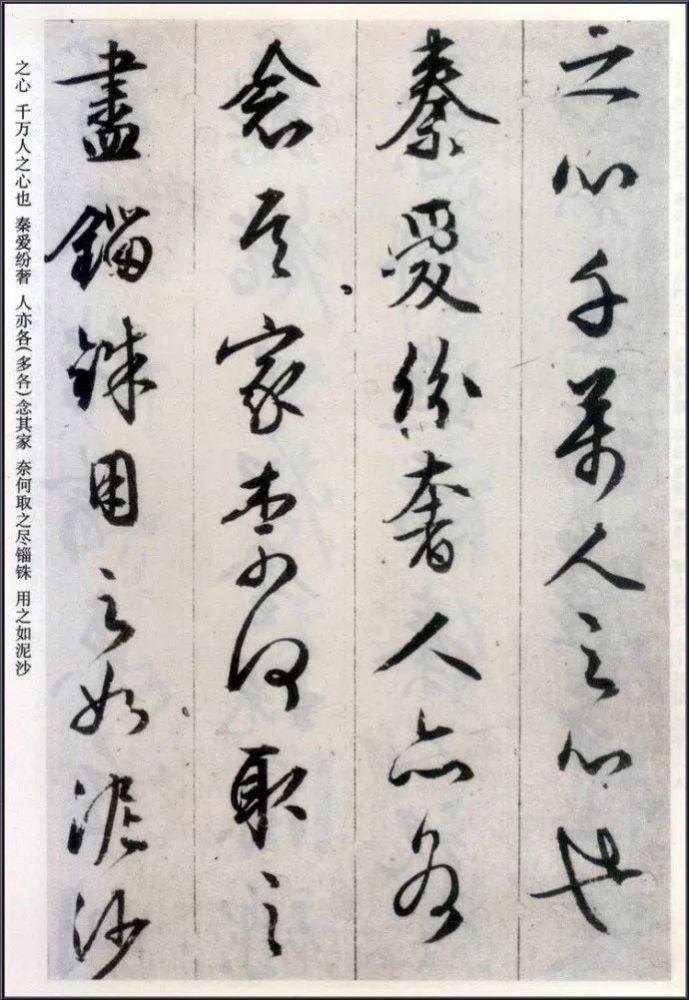 之心千萬人之心也
秦愛紛奢人亦各
念其家柰何取之
盡錙銖用之如泥沙
之心 千万人之心也 秦爱纷奢 人亦各(多各)念其家 奈何取之尽锱铢 用之如泥沙